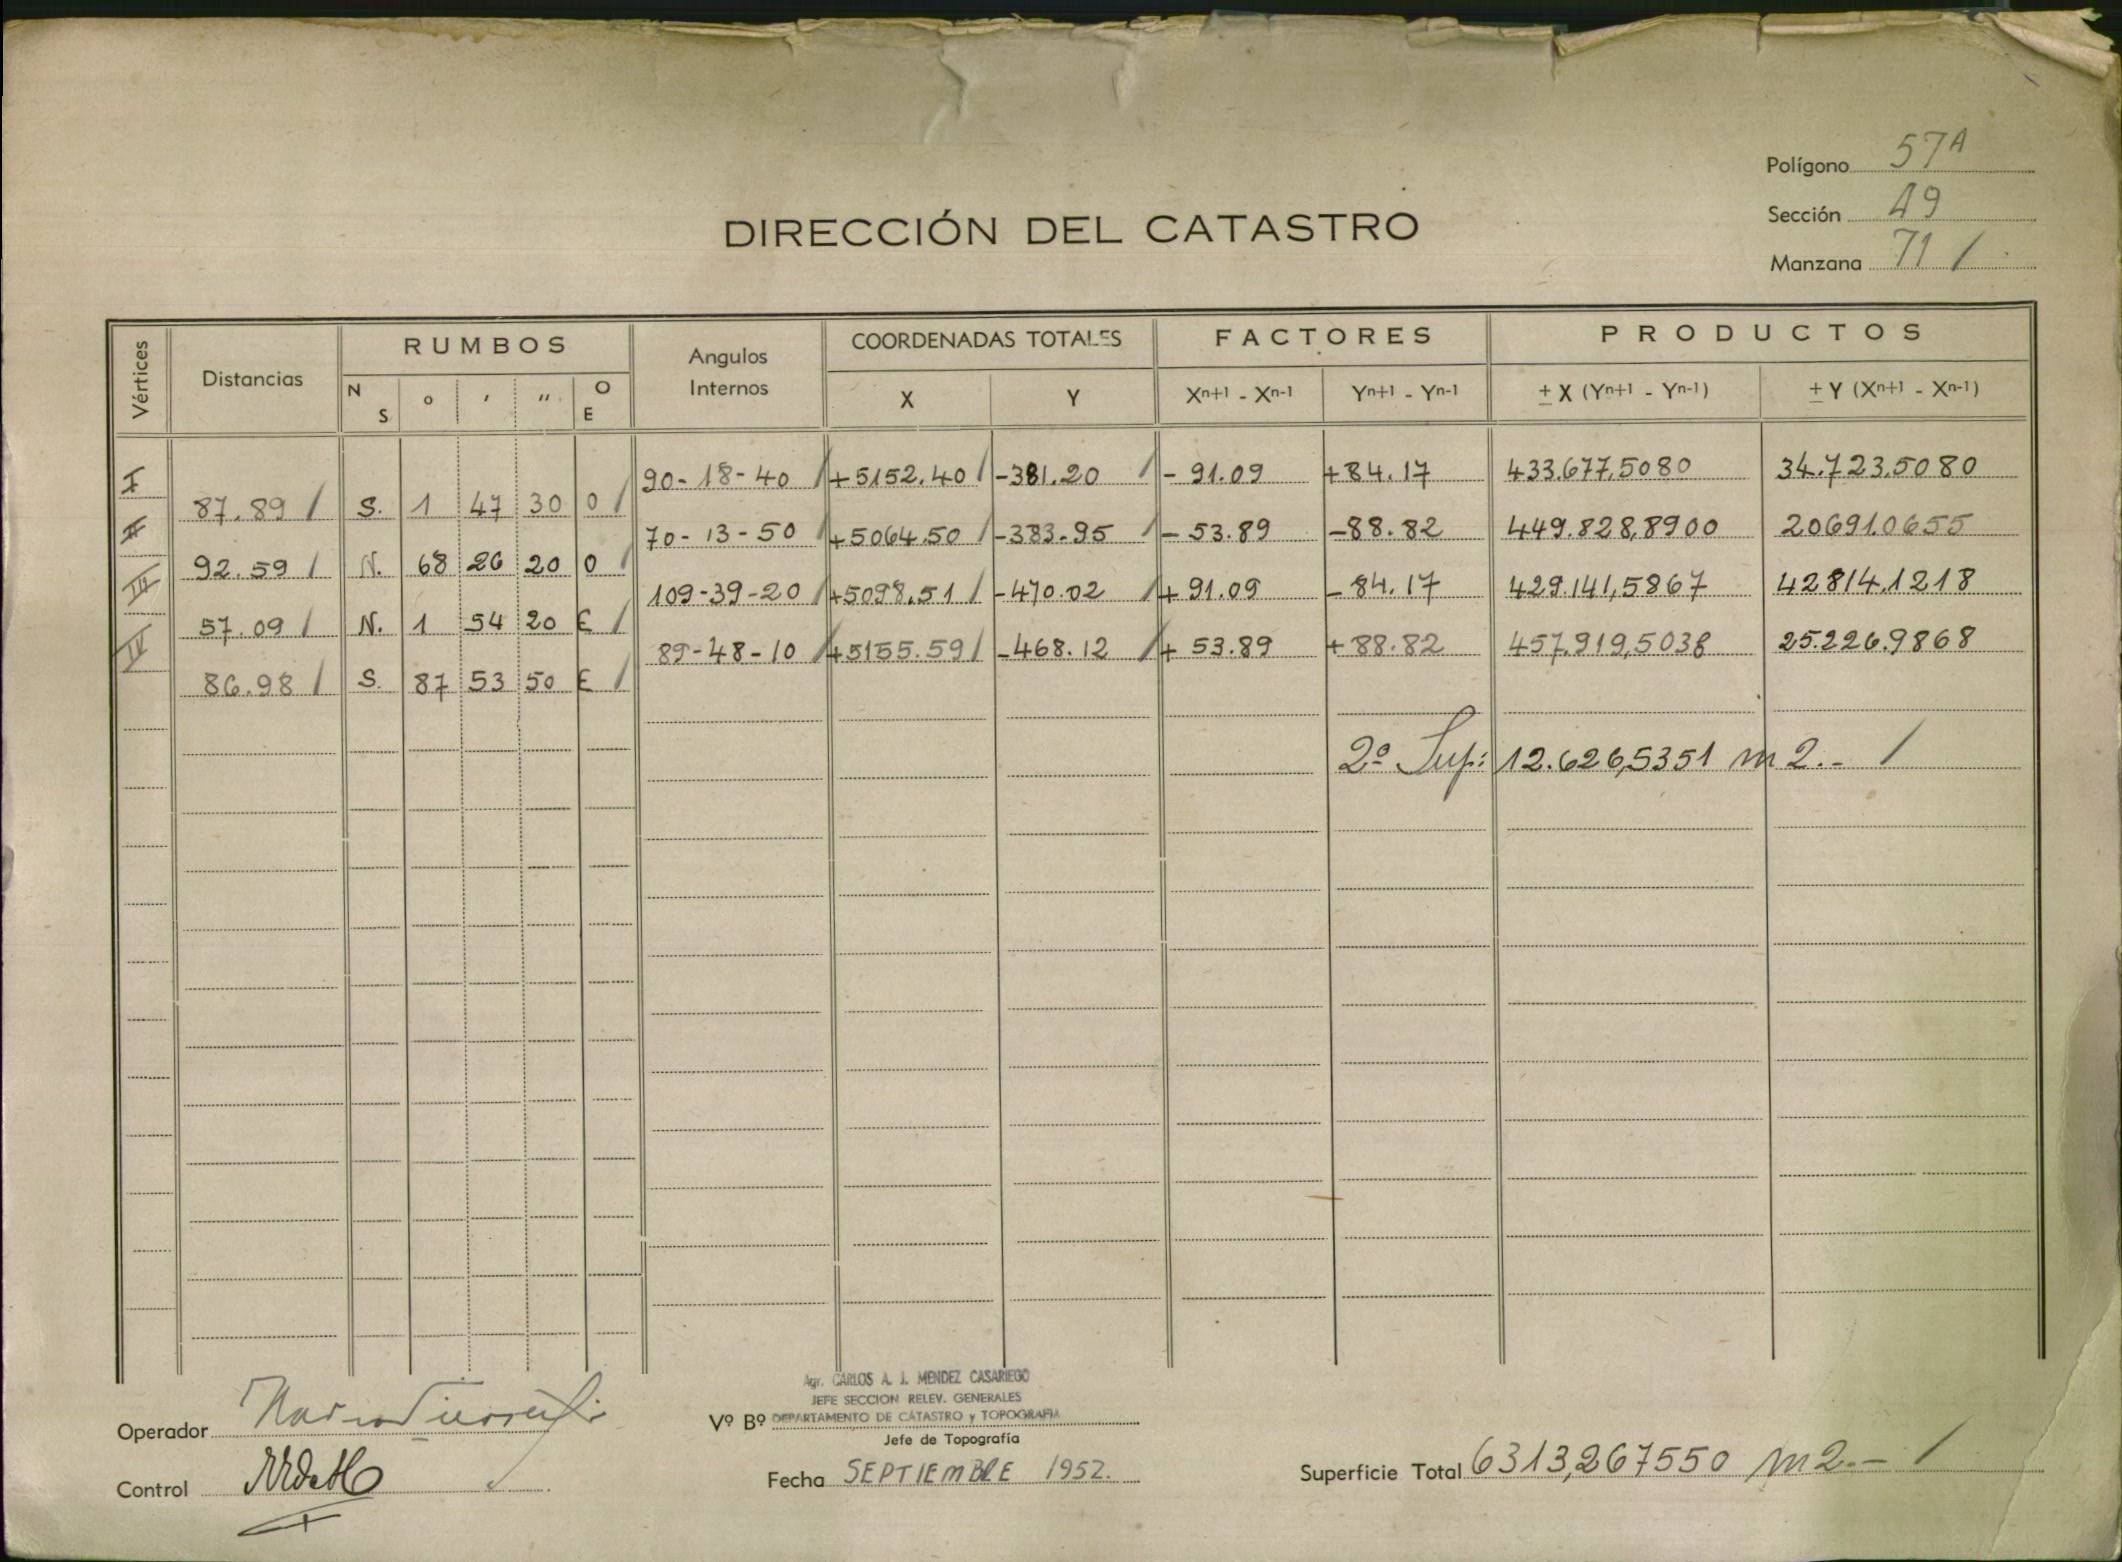 Polígono 57A
Sección 49
Manzana 71 /
DIRECCIÓN DEL CATASTRO
Vértices Distancias RUMBOS Angulos Internos COORDENADAS TOTALES FACTORES PRODUCTOS
N S ° ' " O E X Y Xn+1 - Xn-1 Yn+1 - Yn-1 ± X (Yn+1 - Yn-1) ± Y (Xn+1 - Xn-1)
I 90-18-40 / +5152.40 / -381.20 / - 91.09 +84.17 433.677,5080 34.723.5080
87.89 / S. 1 47 30 O /
II 70-13-50 / +5064.50 / -383.95 / - 53.89 -88.82 449.828,8900 20691.0655
92.59 / N. 68 26 20 O /
III 109-39-20 / +5098.51 / -470.02 / + 91.09 - 84.17 429.141,5867 42814.1218
57.09 / N. 1 54 20 E /
IV 89-48-10 / +5155.59 / -468.12 / + 53.89 + 88.82 457.919,5038 25.226.9868
86.98 / S. 87 53 50 E /
2ª Sup: 12.626,5351 m2.- /
Operador
Control
Agr. CARLOS A. J. MENDEZ CASARIEGO
JEFE SECCION RELEV. GENERALES
Vº Bº DEPARTAMENTO DE CATASTRO y TOPOGRAFIA
Jefe de Topografía
Fecha SEPTIEMBRE 1952.
Superficie Total 6313,267550 m2.- /